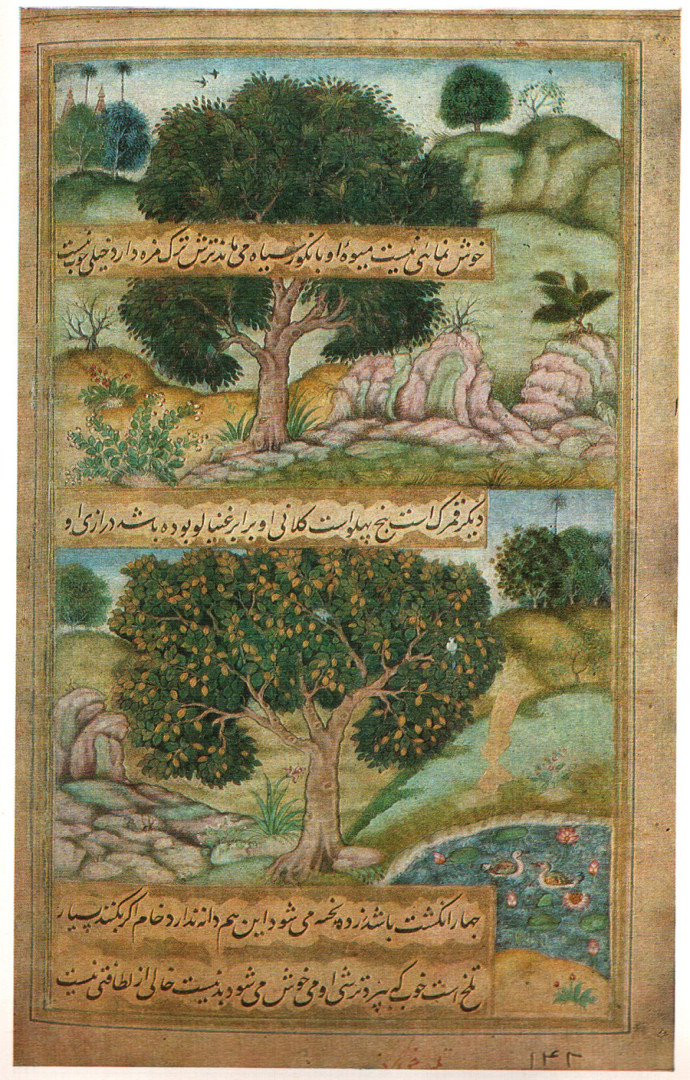 خوش نمائی نیست میوهٔ او بانگور سیاه می ماند ترش ترک مزه دارد خیلی خوب نیست
دیگر قمرک است پنج پهلو است کلانی او برابر غنیالو بوده باشد درازی او
چهار انگشت باشد زرده پخته می شود این هم دانه ندارد خام اگر بکنند بسیار
تلخ است خوب که بپزد ترشی او می خوش می شود بد نیست خالی از لطافتی نیست
۱۴۲